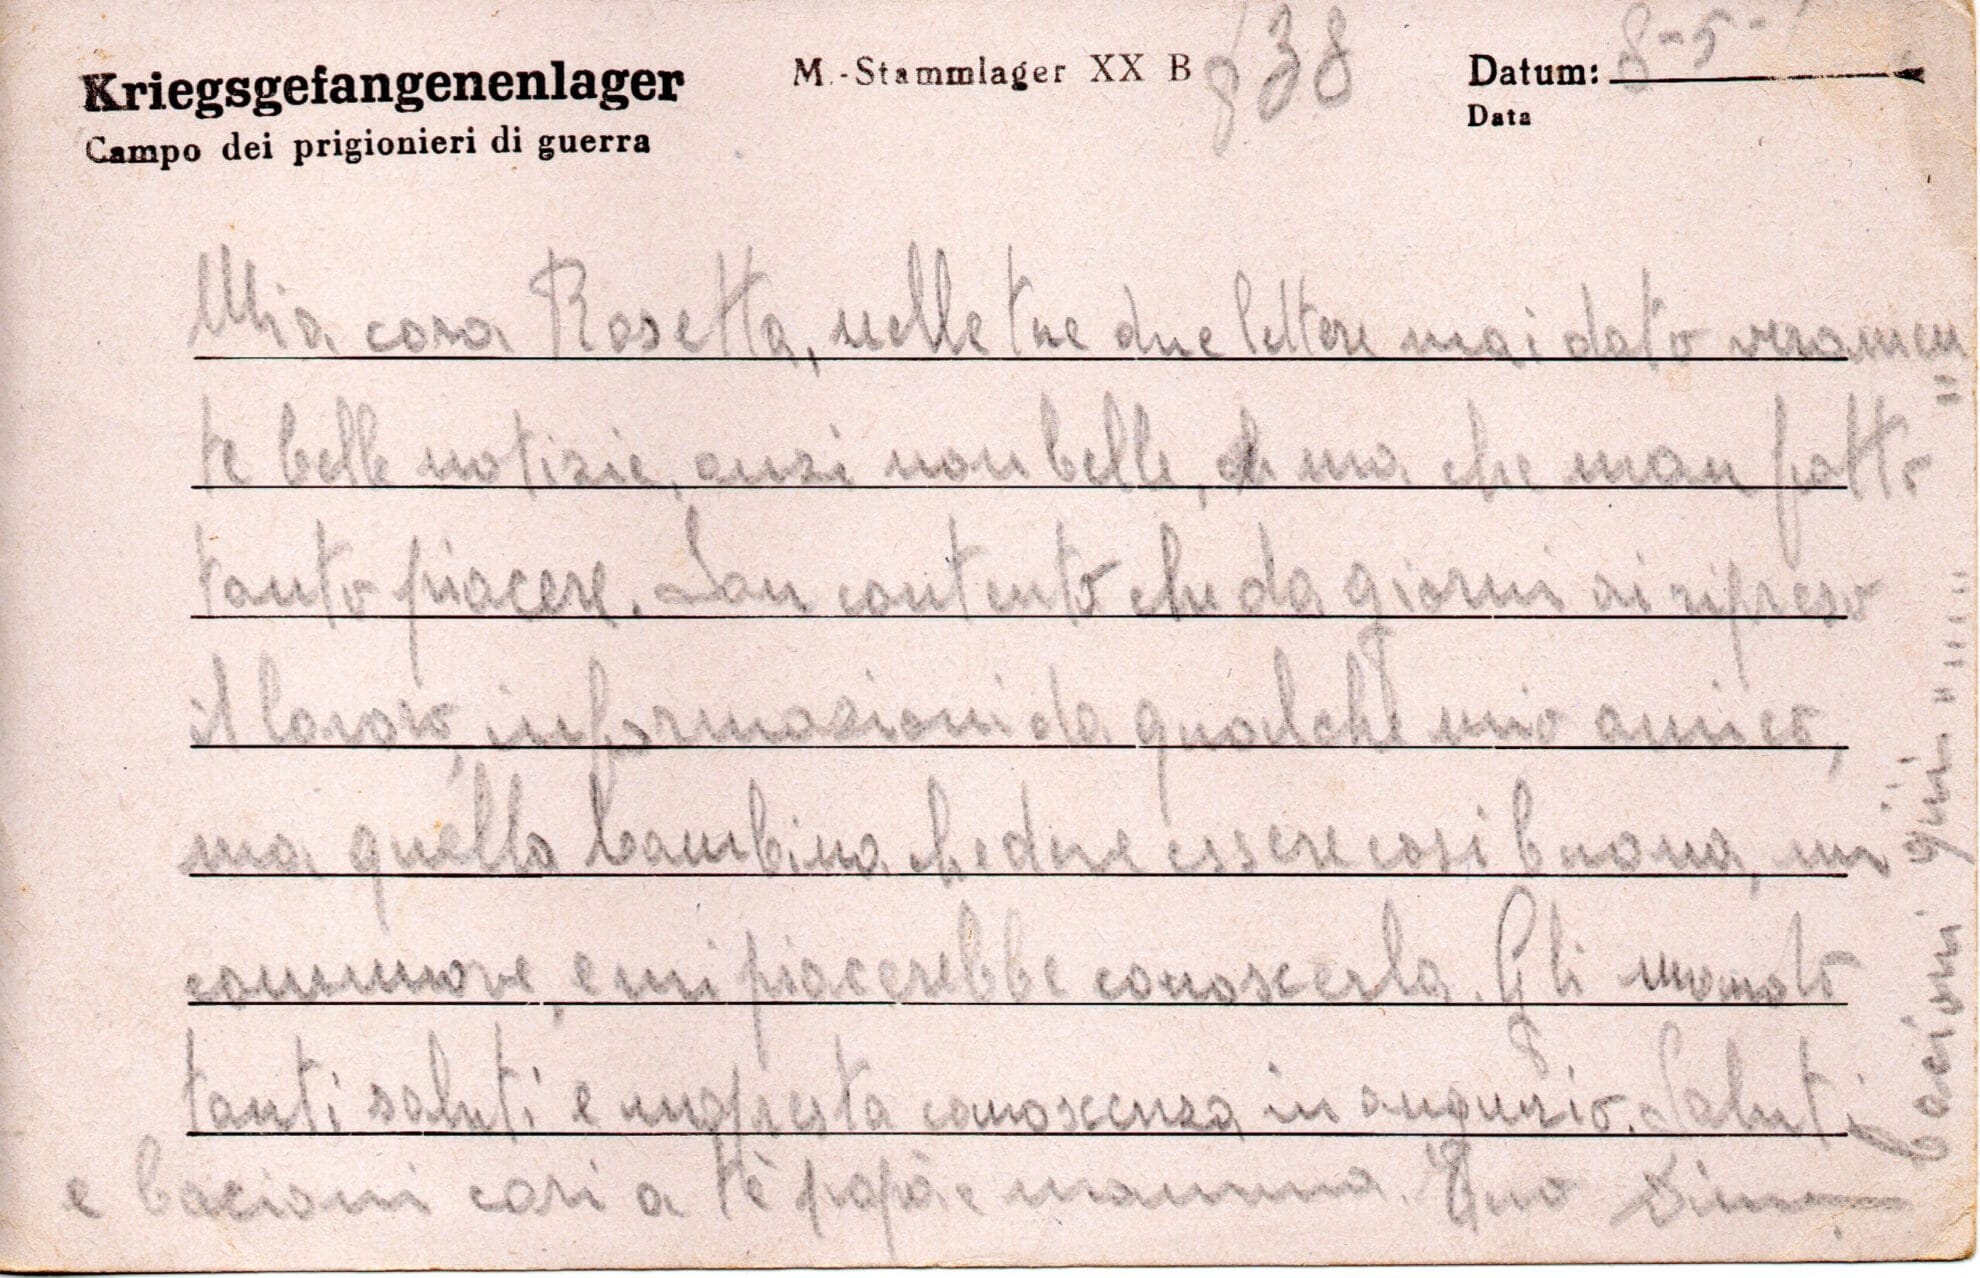 Kriegsgefangenenlager
Campo dei prigionieri di guerra
M.-Stammlager XX B
838
Datum: 8-5-
Data
Mia cara Rosetta, nelle tue due lettere mai dato veramen
te belle notizie, anzi non belle, ma che man fatto
tanto piacere. Son contento che da giorni ai ripreso
il lavoro, informazioni da qualche mio amico,
ma quella bambina che deve essere cosi buona, mi
commuove, e mi piacerebbe conoscerla. Gli
tanti saluti e conoscenza in augurio. Saluti
e bacioni cari a tè papà e mamma. Tuo
bacioni